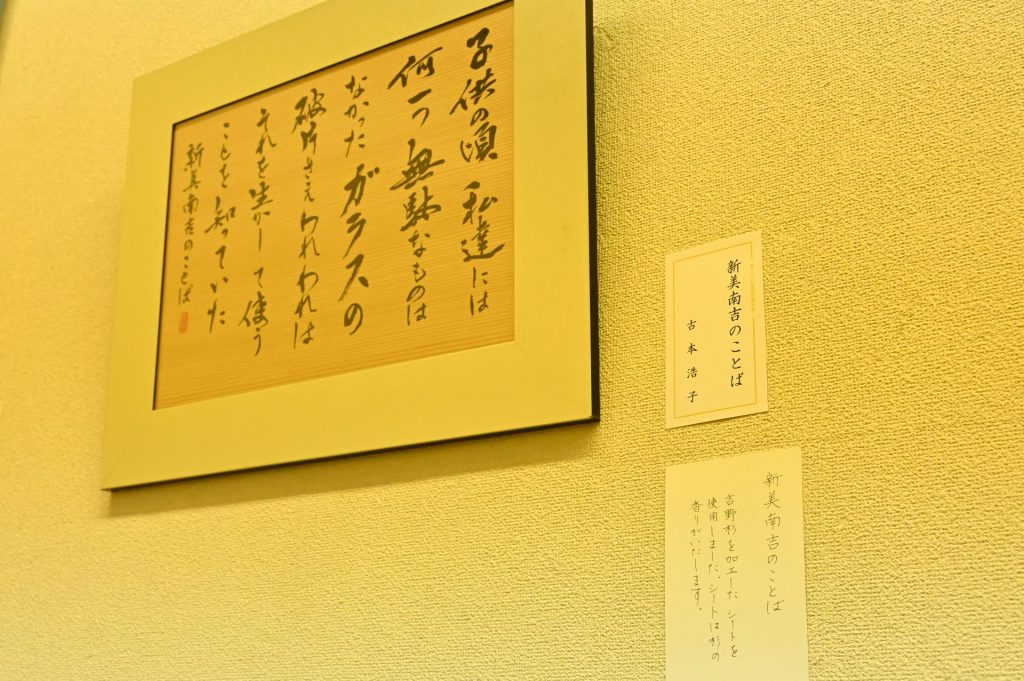 子供の頃 私達には
何一つ 無駄なものは
なかった ガラスの
破片さえ われわれは
それを生かして使う
ことを 知っていた
新美南吉のことば
新美南吉のことば
古本浩子
新美南吉のことば
吉野杉を加工した シートを
使用しました。シートは杉の
香りがいたします。